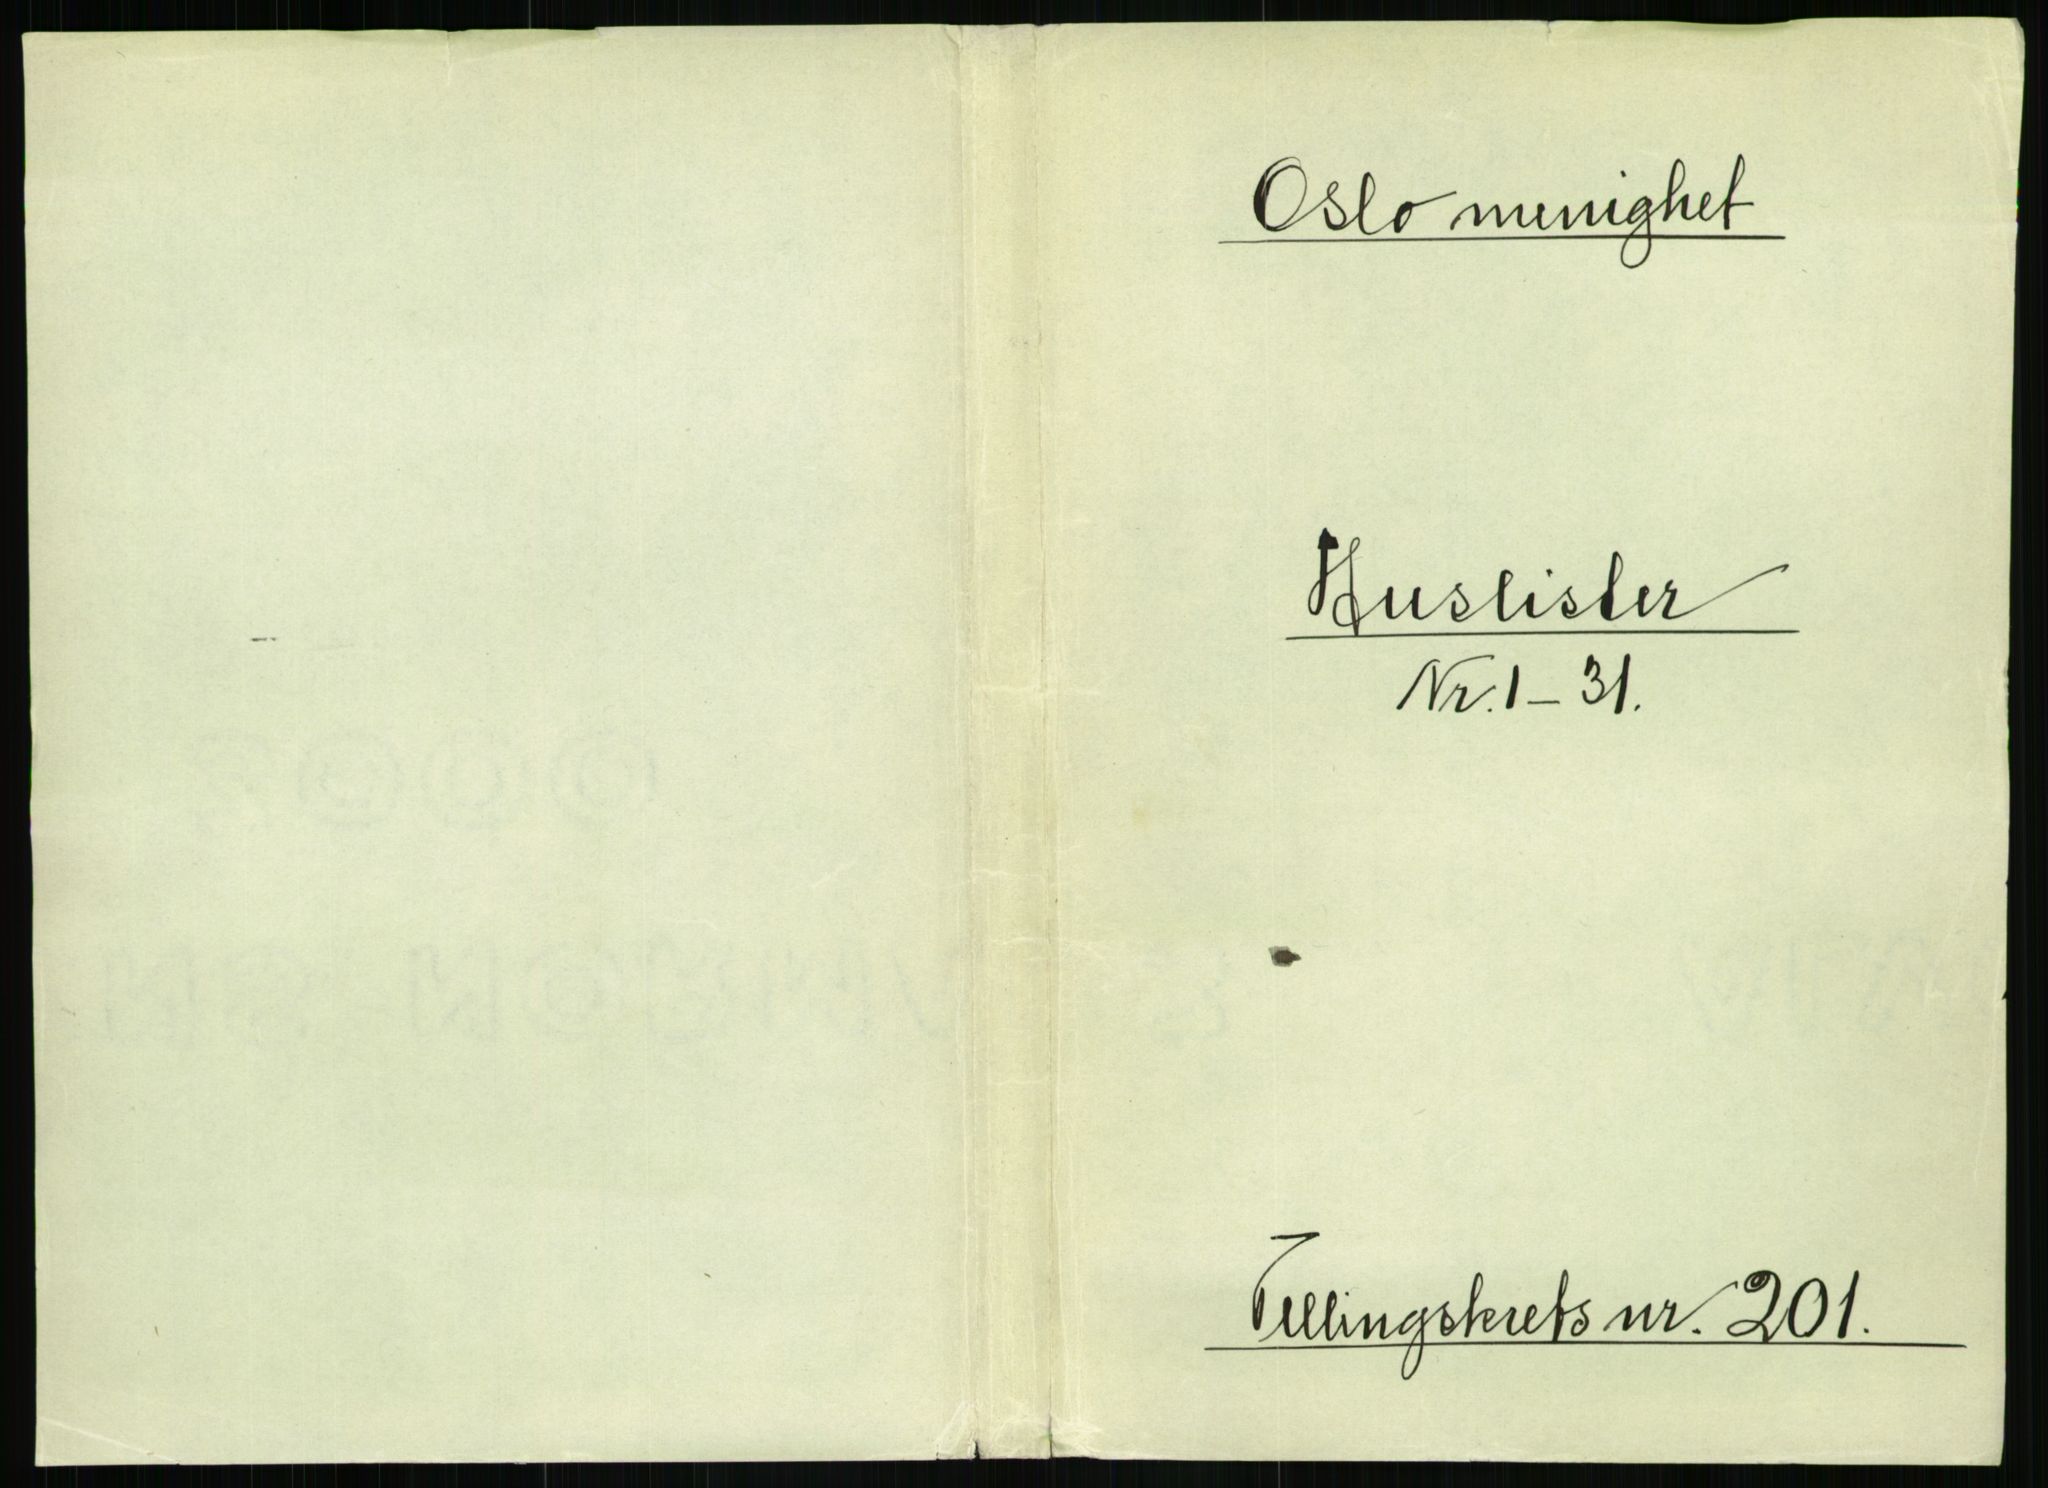 Oslo menighet
Huslister
Nr. 1 – 31.
Tellingskrets nr. 201.